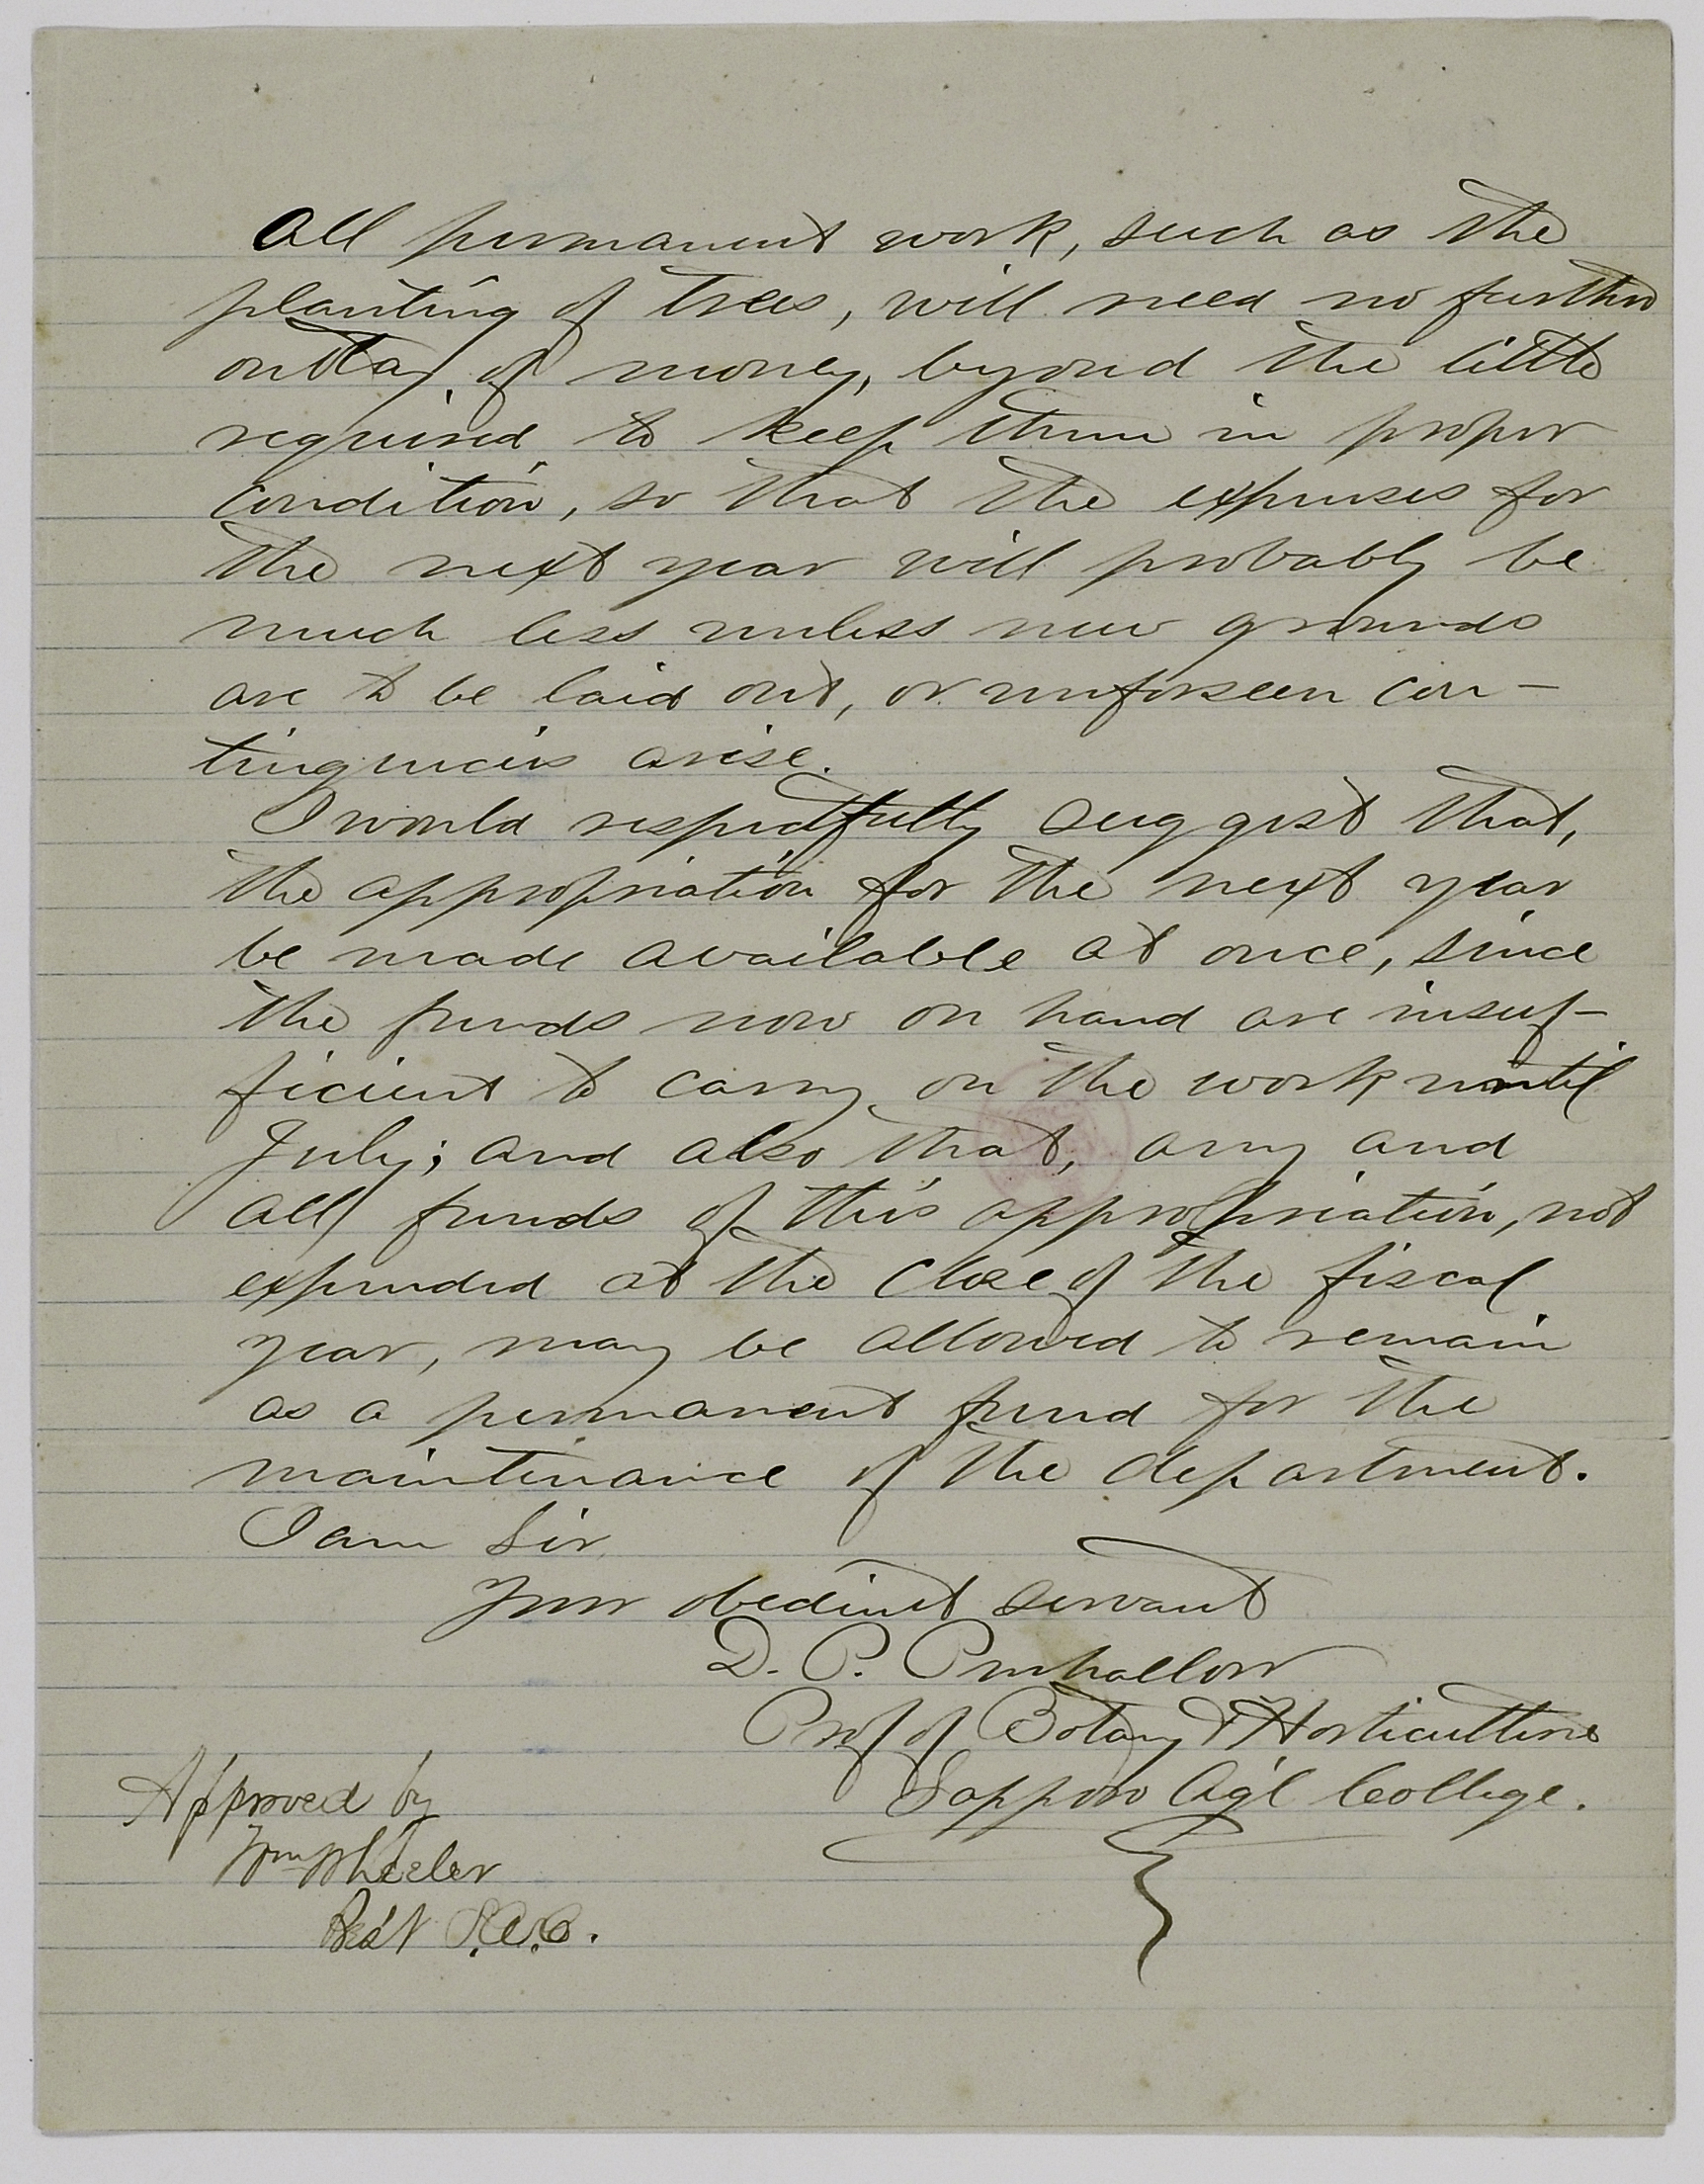 All permanent work, such as the
planting of trees, will need no further
outlay of money, beyond the little
required to keep them in proper
condition, so that the expenses for
the next year will probably be
much less unless new grounds
are to be laid out, or unforseen con-
tingencies arise.
I would respectfully suggest that,
the appropriation for the next year
be made available at once, since
the funds now on hand are insuf-
ficient to carry on the work until
July; and also that, any and
all funds of this appropriation, not
expended at the close of the fiscal
year, may be allowed to remain
as a permanent fund for the
maintenance of the department.
I am Sir
Your obedient servant
D. P. Penhallow
Prof of Botany & Horticulture
Sapporo Ag'l College.
Approved by
Wm Wheeler
Pres't S.A.C.